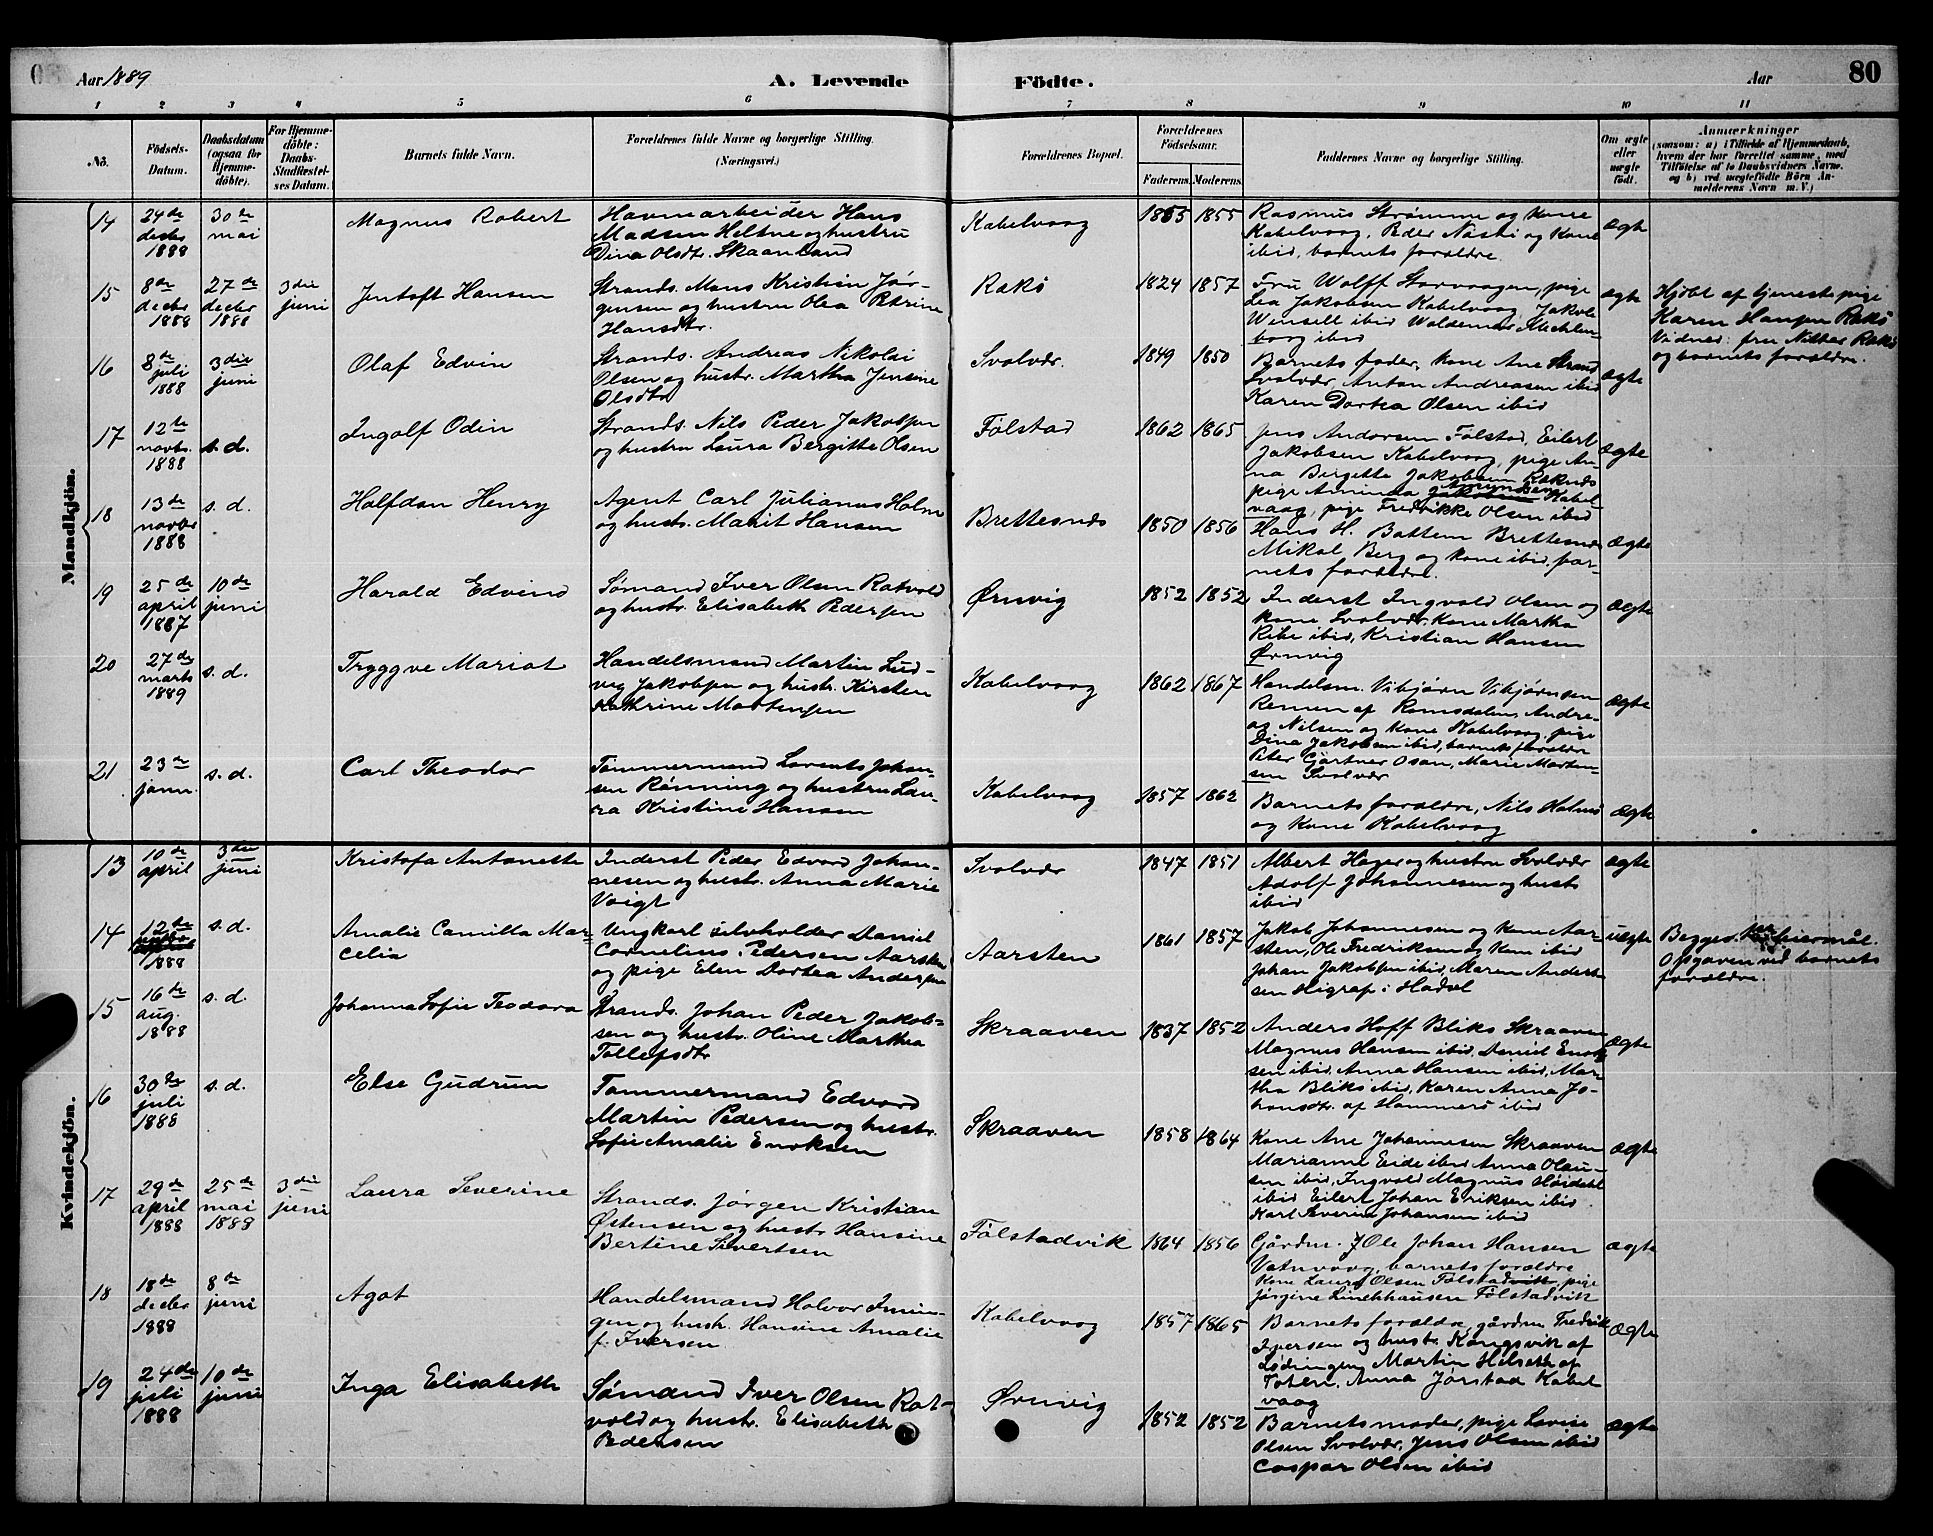 Aar 1889
A. Levende Födte.
Aar
80
1 2 3 4 5 6 7 8 9 10 11
No.
Födsels-Datum.
Daabsdatum (ogsaa for Hjemme-döbte).
For Hjemme-döbte: Daabs-Stadfæstel-ses Datum.
Barnets fulde Navn.
Forældrenes fulde Navne og borgerlige Stilling. (Næringsvei.)
Forældrenes Bopæl.
Forældrenes Födselsaar.
Faderens. Moderens.
Faddernes Navne og borgerlige Stilling.
Om ægte eller uægte födt.
Anmærkninger
(saasom: a) i Tilfælde af Hjemmedaab,
hvem der har forrettet samme, med
Tilföielse af to Daabsvidners Navne,
og b) ved uægtefödte Börn An-
melderens Navn m. V.)
Mandkjön.
14
24de decbr 1888
30te mai
Magnus Robert
Havnearbeider Hans
Madsen Heltne og hustru
Dina Olsdtr. Skaanland
Kabelvaag
1855 1855
Rasmus Strømme og kone
Kabelvaag, Peder Næsti og kone
ibid, barnets forældre.
ægte
15
8de decbr 1888
27de decbr 1888
3die juni
Jentoft Hansen
Strands. Mons Kristian Jør-
gensen og hustru Olea Petrine
Hansdtr.
Rækø
1824 1857
Fru Wolff Storvaagen, pige
Lea Jakobsen Kabelvaag, Jakob
ibid Waldemar Mechlen-
borg ibid
ægte
Hjdbt af tjenestepige
Karen Hansen Rækø
Vidner: fru Rækø
og barnets forældre.
16
8de juli 1888
3die juni
Olaf Edvin
Strands. Andreas Nikolai
Olsen og hustr. Martha Jensine
Olsdtr
Svolvær.
1849 1850
Barnets fader, kone Ane Strand
Svolvær, Anton Andreasen ibid
Karen Dortea Olsen ibid
ægte
17
12te novbr. 1888
s. d.
Ingolf Odin
Strands. Nils Peder Jakobsen
og hustru Laura Bergitte Olsen
Følstad
1862 1865
Jens Andorsen Følstad, Eilert
Jakobsen Kabelvaag, pige An-
na Birgitte Jakobsen
pige Aminda Kabel-
vaag, pige Fredrikke Olsen ibid
ægte
18
13de novbr 1888
s. d.
Halfdan Henry
Agent Carl Julianus Holm
og hustr. Marit Hansen
Brettesnæs
1850 1856
Hans H. Battem Brettesnæs
Mikal Berg og kone ibid. bar-
nets forældre.
ægte
19
25de april 1887
10de juni
Harald Edvind
Sømand Iver Olsen Ratvold
og hustr. Elisabeth Pedersen
Ørnvig
1852 1852
Inderst Ingvald Olsen og
kone Svolvær, kone Martha
Ribe ibid, Kristian Hansen
Ørnvig
ægte
20
27de marts 1889
s. d.
Tryggve Mariat
Handelsmand Martin Lud-
vig Jakobsen og hustr. Kirsten
Kathrine Mortensen
Kabelvaag
1862 1867
Handelsm. Vibjørn Vibjørnsen
Remen af Romsdalen, Andre-
as Nilsen og kone Kabelvaag, pige
Dina Jakobsen ibid, barnets forældre
Peter Gjärtner Osan, Marie Morten-
sen Svolvær
ægte
21
23de janu.
s. d.
Carl Theodor
Tømmermand Lorents Johan-
sen Rønning og hustru Lau-
ra Kristine Hansen
Kabelvaag
1857 1862
Barnets forældre, Nils Holmø
og kone Kabelvaag
ægte
Kvindekjön.
13
10de april
3die juni
Kristofa Antonette
Inderst Peder Edvard Johan-
nesen og hustr. Anna Marie
Voigt
Svolvær
1847 1851
Albert Hager og hustru Svolvær
Adolf Johannesen og hustr
ibid
ægte
14
12te 1888
s. d.
Amalie Camilla Mar-
celia
Ungkarl selvholder Daniel
Cornelius Pedersen Aarsten
og pige Elen Dortea Andersen
Aarsten
1861 1857
Jakob Johannesen og kone Aar-
sten, Ole Fredriksen og kone ibid
Johan Jakobsen ibid, MarenAnder-
sen Higraf i Hadsel
uægte
Begges leiermål.
Opgaven ved barnets
forældre.
15
16de aug. 1888
s. d.
Johanna Sofie Teodora
Strands. Johan Peder Jakob-
sen og hustr. Oline Marthea
Tollefsdtr
Skraaven
1837 1852
Anders Hoff Bliks Skraaven
Magnus Hansen ibid, Daniel Enok-
sen ibid, Anna Hansen ibid, Mar-
tha Bliks ibid, Karen Anna Jo-
hansdtr. af Hammerø ibid
ægte
16
30de juli 1888
s. d.
Else Gudrun
Tømmermand Edvard
Martin Pedersen og hustr.
Sofie Amalie Enoksen
Skraaven
1858 1864
Kone Ane Johannesen Skraaven
Marianne Eide ibid Anna Olau-
sen ibid, Ingvald Magnus Høidahl
ibid Eilert Johan Eriksen ibid
Karl Severin Johansen ibid
ægte
17
29de april 1888
25de mai 1888
3die juni
Laura Severine
Strands. Jørgen Kristian
Østensen og hustr Hansine
Bertine Sivertsen
Følstadvik
1864 1856
Gårdm. J Ole Johan Hansen
Vatnvaag, barnets forældre
Kone Laura Olsen Følstadvik, pige
Jørgine Linckhausen Følstadvik
ægte
18
18de decbr 1888
8de juni
Agot
Handelsmand Halvor Imin-
gen og hustr. Hansine Amalie
f. Iversen
Kabelvaag
1857 1865
Barnets forældre, gårdm Fredrik
Iversen og hustr. Kongsvik af
Lødingen, Martin Helseth af
Toten, Anna Jørstad Kabel
vaag
ægte
19
24de juli 1888
10de juni
Inga Elisabeth
Sømand Iver Olsen Rat-
vold og hustr. Elisabeth
Pedersen
Ørnvig
1852 1852
Barnets moder, pige Lovise
Olsen Svolvær, Jens Olsen ibid
Caspar Olsen ibid
ægte